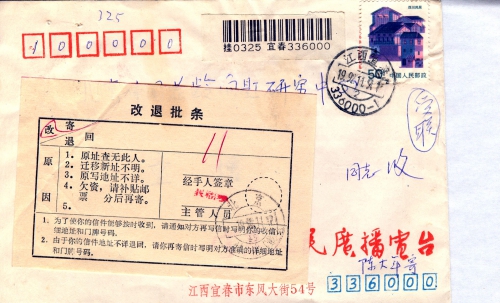 325
1 0 0 0 0 0
桂0325 宜春336000
50分
中国人民邮政
江西宜春
336000-1
改退批条
改 寄
退 回
原因
1. 原址查无此人。
2. 迁移新址不明。
3. 原写地址不详。
4. 欠资，请补贴邮
票 分后再寄。
5.
11
经手人签章
主管人员
1. 为了使你的信件能够按时收到，请通知对方再写信时写明你的收信详细地址和门牌号码。
2. 由于你的信件地址不详退回，请你再寄信时写明对方准确的详细地址和门牌号码。
同志 收
民廣播電台
陈大年寄
江西宜春市东风大街54号
336000